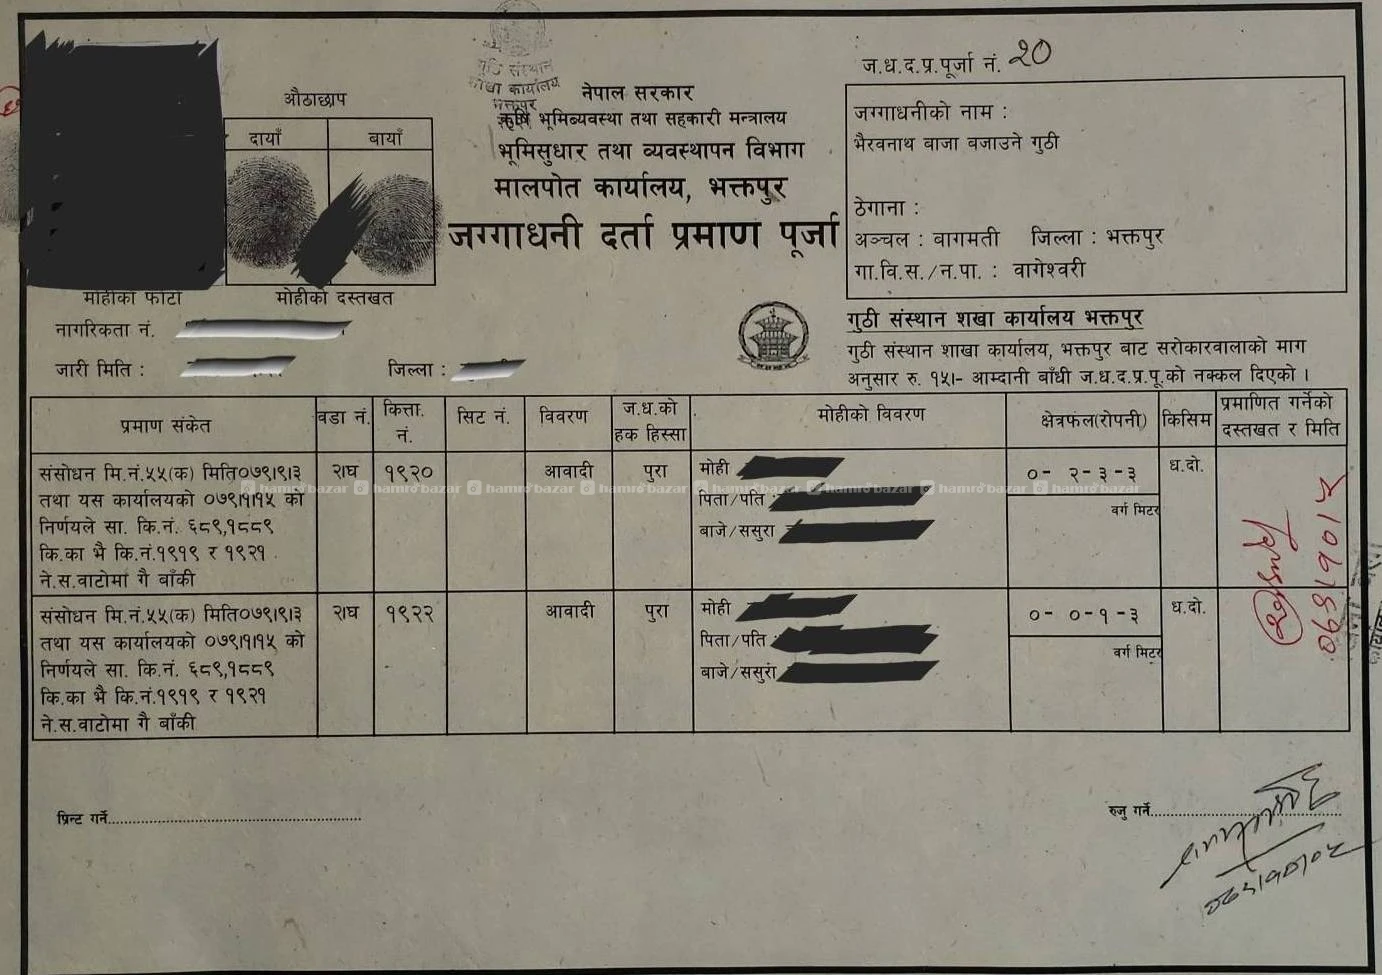 गुठि संस्थान
शाखा कार्यालय
भक्तपुर
ज.ध.द.प्र.पूर्जा नं. २०
औठाछाप
दायाँ बायाँ
नेपाल सरकार
कृषि भूमिब्यवस्था तथा सहकारी मन्त्रालय
भूमिसुधार तथा व्यवस्थापन विभाग
मालपोत कार्यालय, भक्तपुर
जग्गाधनी दर्ता प्रमाण पूर्जा
जग्गाधनीको नाम :
भैरवनाथ बाजा बजाउने गुठी
ठेगाना :
अञ्चल : बागमती जिल्ला : भक्तपुर
गा.वि.स./न.पा. : वागेश्वरी
मोहीको फोटो मोहीको दस्तखत
नागरिकता नं.
जारी मिति : जिल्ला :
गुठी संस्थान शखा कार्यालय भक्तपुर
गुठी संस्थान शाखा कार्यालय, भक्तपुर बाट सरोकारवालाको माग
अनुसार रु. १५।- आम्दानी बाँधी ज.ध.द.प्र.पू.को नक्कल दिएको ।
प्रमाण संकेत वडा नं. कित्ता. नं. सिट नं. विवरण ज.ध.को हक हिस्सा मोहीको विवरण क्षेत्रफल(रोपनी) किसिम प्रमाणित गर्नेको दस्तखत र मिति
संसोधन मि.नं.५५(क) मिति०७९।९।३ २।घ १९२० आवादी पुरा मोही ०- २-३-३ ध.दो.
hamro bazar hamro bazar hamro bazar hamro bazar hamro bazar hamro bazar hamro bazar hamro bazar
तथा यस कार्यालयको ०७९।९।१५ को पिता/पति वर्ग मिटर
निर्णयले सा. कि.नं. ६८९,१८८९ बाजे/ससुरा
कि.का भै कि.नं.१९१९ र १९२१
ने.स.वाटोमा गै बाँकी
संसोधन मि.नं.५५(क) मिति०७९।९।३ २।घ १९२२ आवादी पुरा मोही ०- ०-१-३ ध.दो.
तथा यस कार्यालयको ०७९।९।१५ को पिता/पति वर्ग मिटर
निर्णयले सा. कि.नं. ६८९,१८८९ बाजे/ससुरा
कि.का भै कि.नं.१९१९ र १९२१
ने.स.वाटोमा गै बाँकी
प्रिन्ट गर्ने
रुजु गर्ने